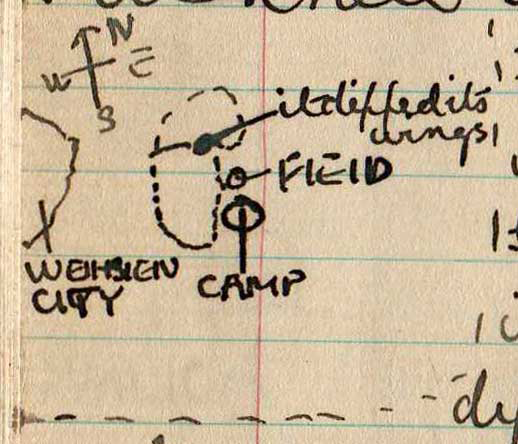 N
W E
S
it dipped its
wings
FIELD
WEIHSIEN
CITY
CAMP